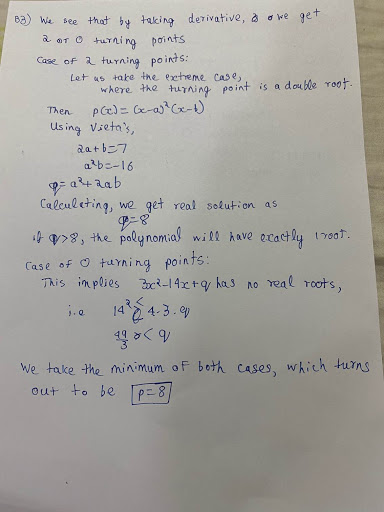 B3) We see that by taking derivative, we get
2 or 0 turning points
Case of 2 turning points:
Let us take the extreme case,
where the turning point is a double root.
Then p(x) = (x-a)²(x-b)
Using Vieta's,
2a+b=7
a²b=-16
q=a²+2ab
Calculating, we get real solution as
q=8
if q>8, the polynomial will have exactly 1 root.
Case of 0 turning points:
This implies 3x²-14x+q has no real roots,
i.e 14² < 4.3.q
49/3 < q
We take the minimum of both cases, which turns
out to be p=8